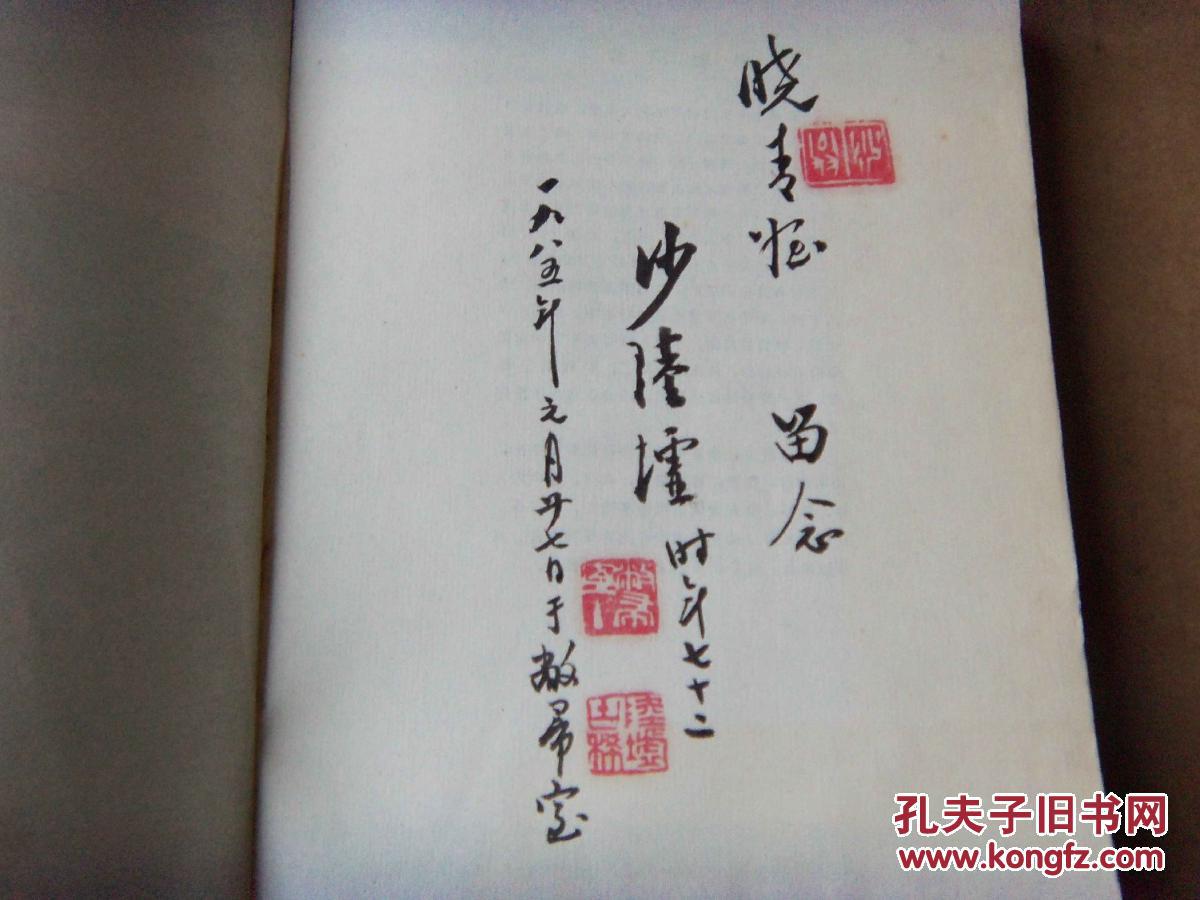 晓青侄 留念
沙陆墟
时年七十二
一九八五年元月廿七日于敝帚室
敝帚室
陆墟
孔夫子旧书网
www.kongfz.com